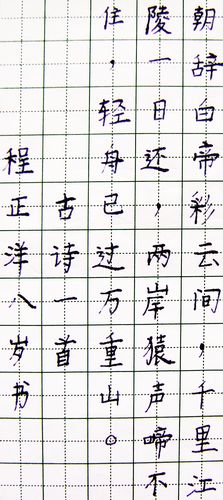 朝辞白帝彩云间，千里江
陵一日还，两岸猿声啼不
住，轻舟已过万重山。
古诗一首
程正洋八岁书